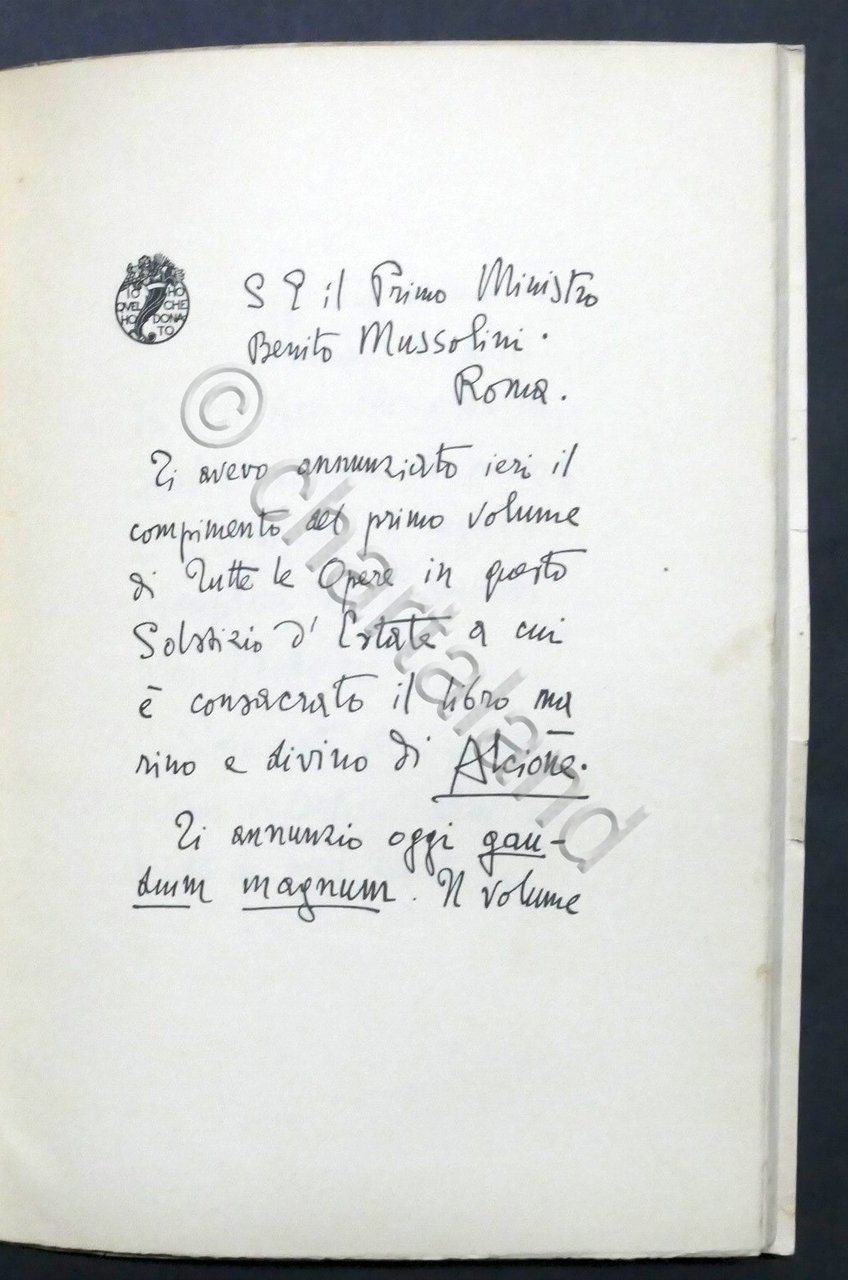 IO HO
QVEL CHE
HO DONA
TO
S E il Primo Ministro
Benito Mussolini.
Roma.
Ti avevo annunziato ieri il
compimento del primo volume
di Tutte le Opere in questo
Solstizio d' Estate a cui
è consacrato il libro ma
rino e divino di Alcione.
Ti annunzio oggi gau-
dium magnum. Il volume
© chartaland